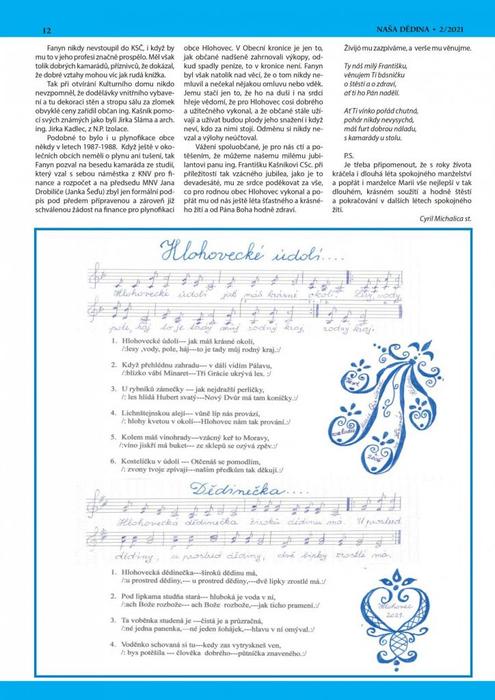 12
NAŠA DĚDINA • 2/2021
Fanyn nikdy nevstoupil do KSČ, i když by
mu to v jeho profesi značně prospělo. Měl však
tolik dobrých kamarádů, příznivců, že dokázal,
že dobré vztahy mohou víc jak rudá knížka.
Tak při otvírání Kulturního domu nikdo
nevzpomněl, že dodělávky vnitřního vybave-
ní a tu dekoraci stěn a stropu sálu za zlomek
obvyklé ceny zařídil občan ing. Kašník pomo-
cí svých známých jako byli Jirka Sláma a arch.
ing. Jirka Kadlec, z N.P. Izolace.
Podobné to bylo i u plynofikace obce
někdy v letech 1987-1988. Když ještě v oko-
lečních obcích neměli o plynu ani tušení, tak
Fanyn pozval na besedu kamaráda ze studií,
který vzal s sebou náměstka z KNV pro fi-
nance a rozpočet a na předsedu MNV Jana
Drobiliče (Janka Šedu) zbyl jen formální pod-
pis pod předem připravenou a zároveň již
schválenou žádost na finance pro plynofikaci
obce Hlohovec. V Obecní kronice je jen to,
jak občané nadšeně zahrnovali výkopy, od-
kud spadly peníze, to v kronice není. Fanyn
byl však natolik nad věcí, že o tom nikdy ne-
mluvil a nečekal nějakou omluvu nebo vděk.
Jemu stačí jen to, že ho na duši i na srdci
hřeje vědomí, že pro Hlohovec cosi dobrého
a užitečného vykonal, a že občané stále uží-
vají a užívat budou plody jeho snažení i když
neví, kdo za nimi stojí. Odměnu si nikdy ne-
vzal a výlohy neúčtoval.
Vážení spoluobčané, je pro nás ctí a po-
těšením, že můžeme našemu milému jubi-
lantovi panu ing. Františku Kašníkovi CSc. při
příležitosti tak vzácného jubilea, jako je to
devadesáté, mu ze srdce poděkovat za vše,
co pro rodnou obec Hlohovec vykonal a po-
přát mu od nás ještě léta šťastného a krásné-
ho žití a od Pána Boha hodně zdraví.
Živijó mu zazpíváme, a verše mu věnujme.
Ty náš milý Františku,
věnujem Ti básničku
o štěstí a o zdraví,
ať ti ho Pán nadělí.
Ať Ti vínko pořád chutná,
pohár nikdy nevyschá,
máš furt dobrou náladu,
s kamarády u stolu.
P.S.
Je třeba připomenout, že s roky života
kráčela i dlouhá léta spokojného manželství
a popřát i manželce Marii vše nejlepší v tak
dlouhém, krásném soužití a hodně štěstí
a pokračování v dalších létech spokojného
žití.
Cyril Michalica st.
Hlohovecké údolí....
Hlohovecké údolí jak máš krásné okolí. Lesy, vody,
pole, háj to je tady můj rodný kraj, rodný kraj.
1. Hlohovecké údolí--- jak máš krásné okolí,
/:lesy ,vody, pole, háj---to je tady můj rodný kraj.:/
2. Když přehlédnu zahradu--- v dáli vidím Pálavu,
/:blízko vábí Minaret---Tři Grácie ukrývá les. :/
3. U rybníků zámečky --- jak nejdražší perličky,
/: les hlídá Hubert svatý---Nový Dvůr má tam koníčky.:/
4. Lichnštejnskou alejí--- vůně líp nás provází,
/: hlohy kvetou v okolí---Hlohovec nám tak prování.:/
5. Kolem máš vinohrady---vzácný keř to Moravy,
/:víno jiskří má buket--- ze sklepů se ozývá zpěv.:/
6. Kostelíčku v údolí --- Otčenáš se pomodlím,
/: zvony tvoje zpívají---našim předkům tak děkují.:/
Dědinečka....
Hlohovecká dědinečka široká dědinu má. U prostřed
dědiny, u prostřed dědiny, dvě lipky zrostlé má.
1. Hlohovecká dědinečka---široků dědinu má,
/:u prostred dědiny,--- u prostřed dědiny,---dvě lipky zrostlé má.:/
2. Pod lipkama studňa stará--- hluboká je voda v ní,
/:ach Bože rozbože--- ach Bože rozbože,---jak ticho pramení.:/
3. Ta voběnka studená je ---čistá je a průzračná,
/:né jedna panenka,---né jeden šohájek,---hlavu v ní omýval.:/
4. Voděnko schovaná si tu---kedy zas vytryskneš ven,
/: bys potěšila --- člověka dobrého---pútníčka znaveného.:/
Hlohovec
2021.